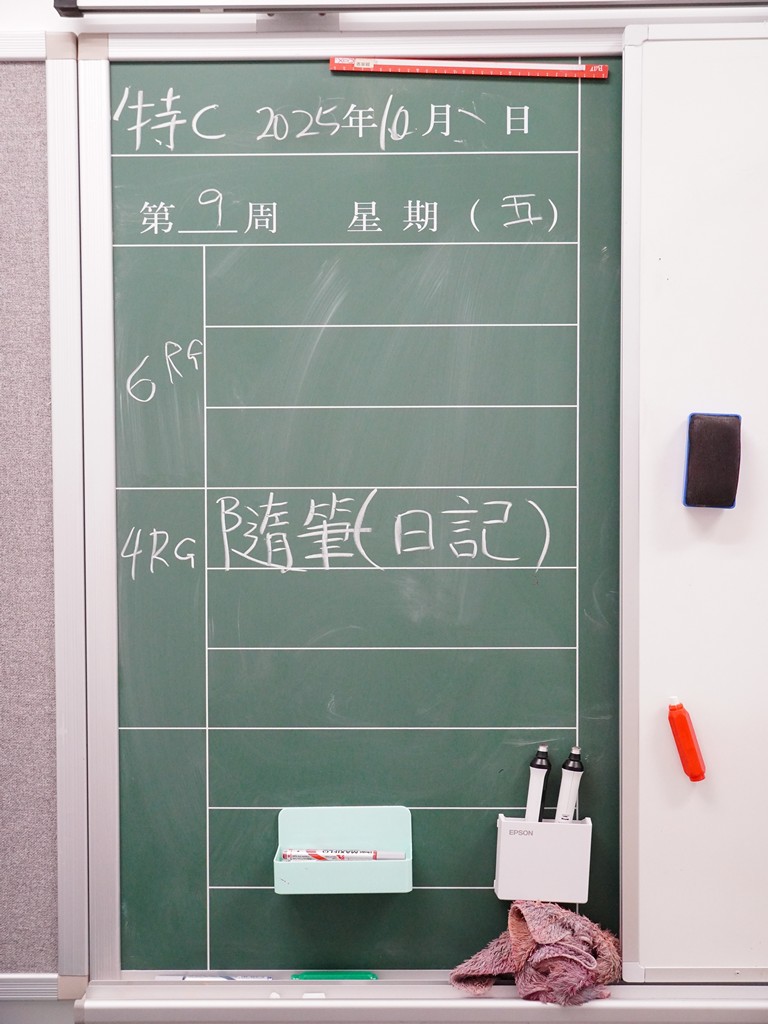 特C 2025年10月 日
第9周 星期(五)
6RG
4RG 隨筆(日記)
EPSON